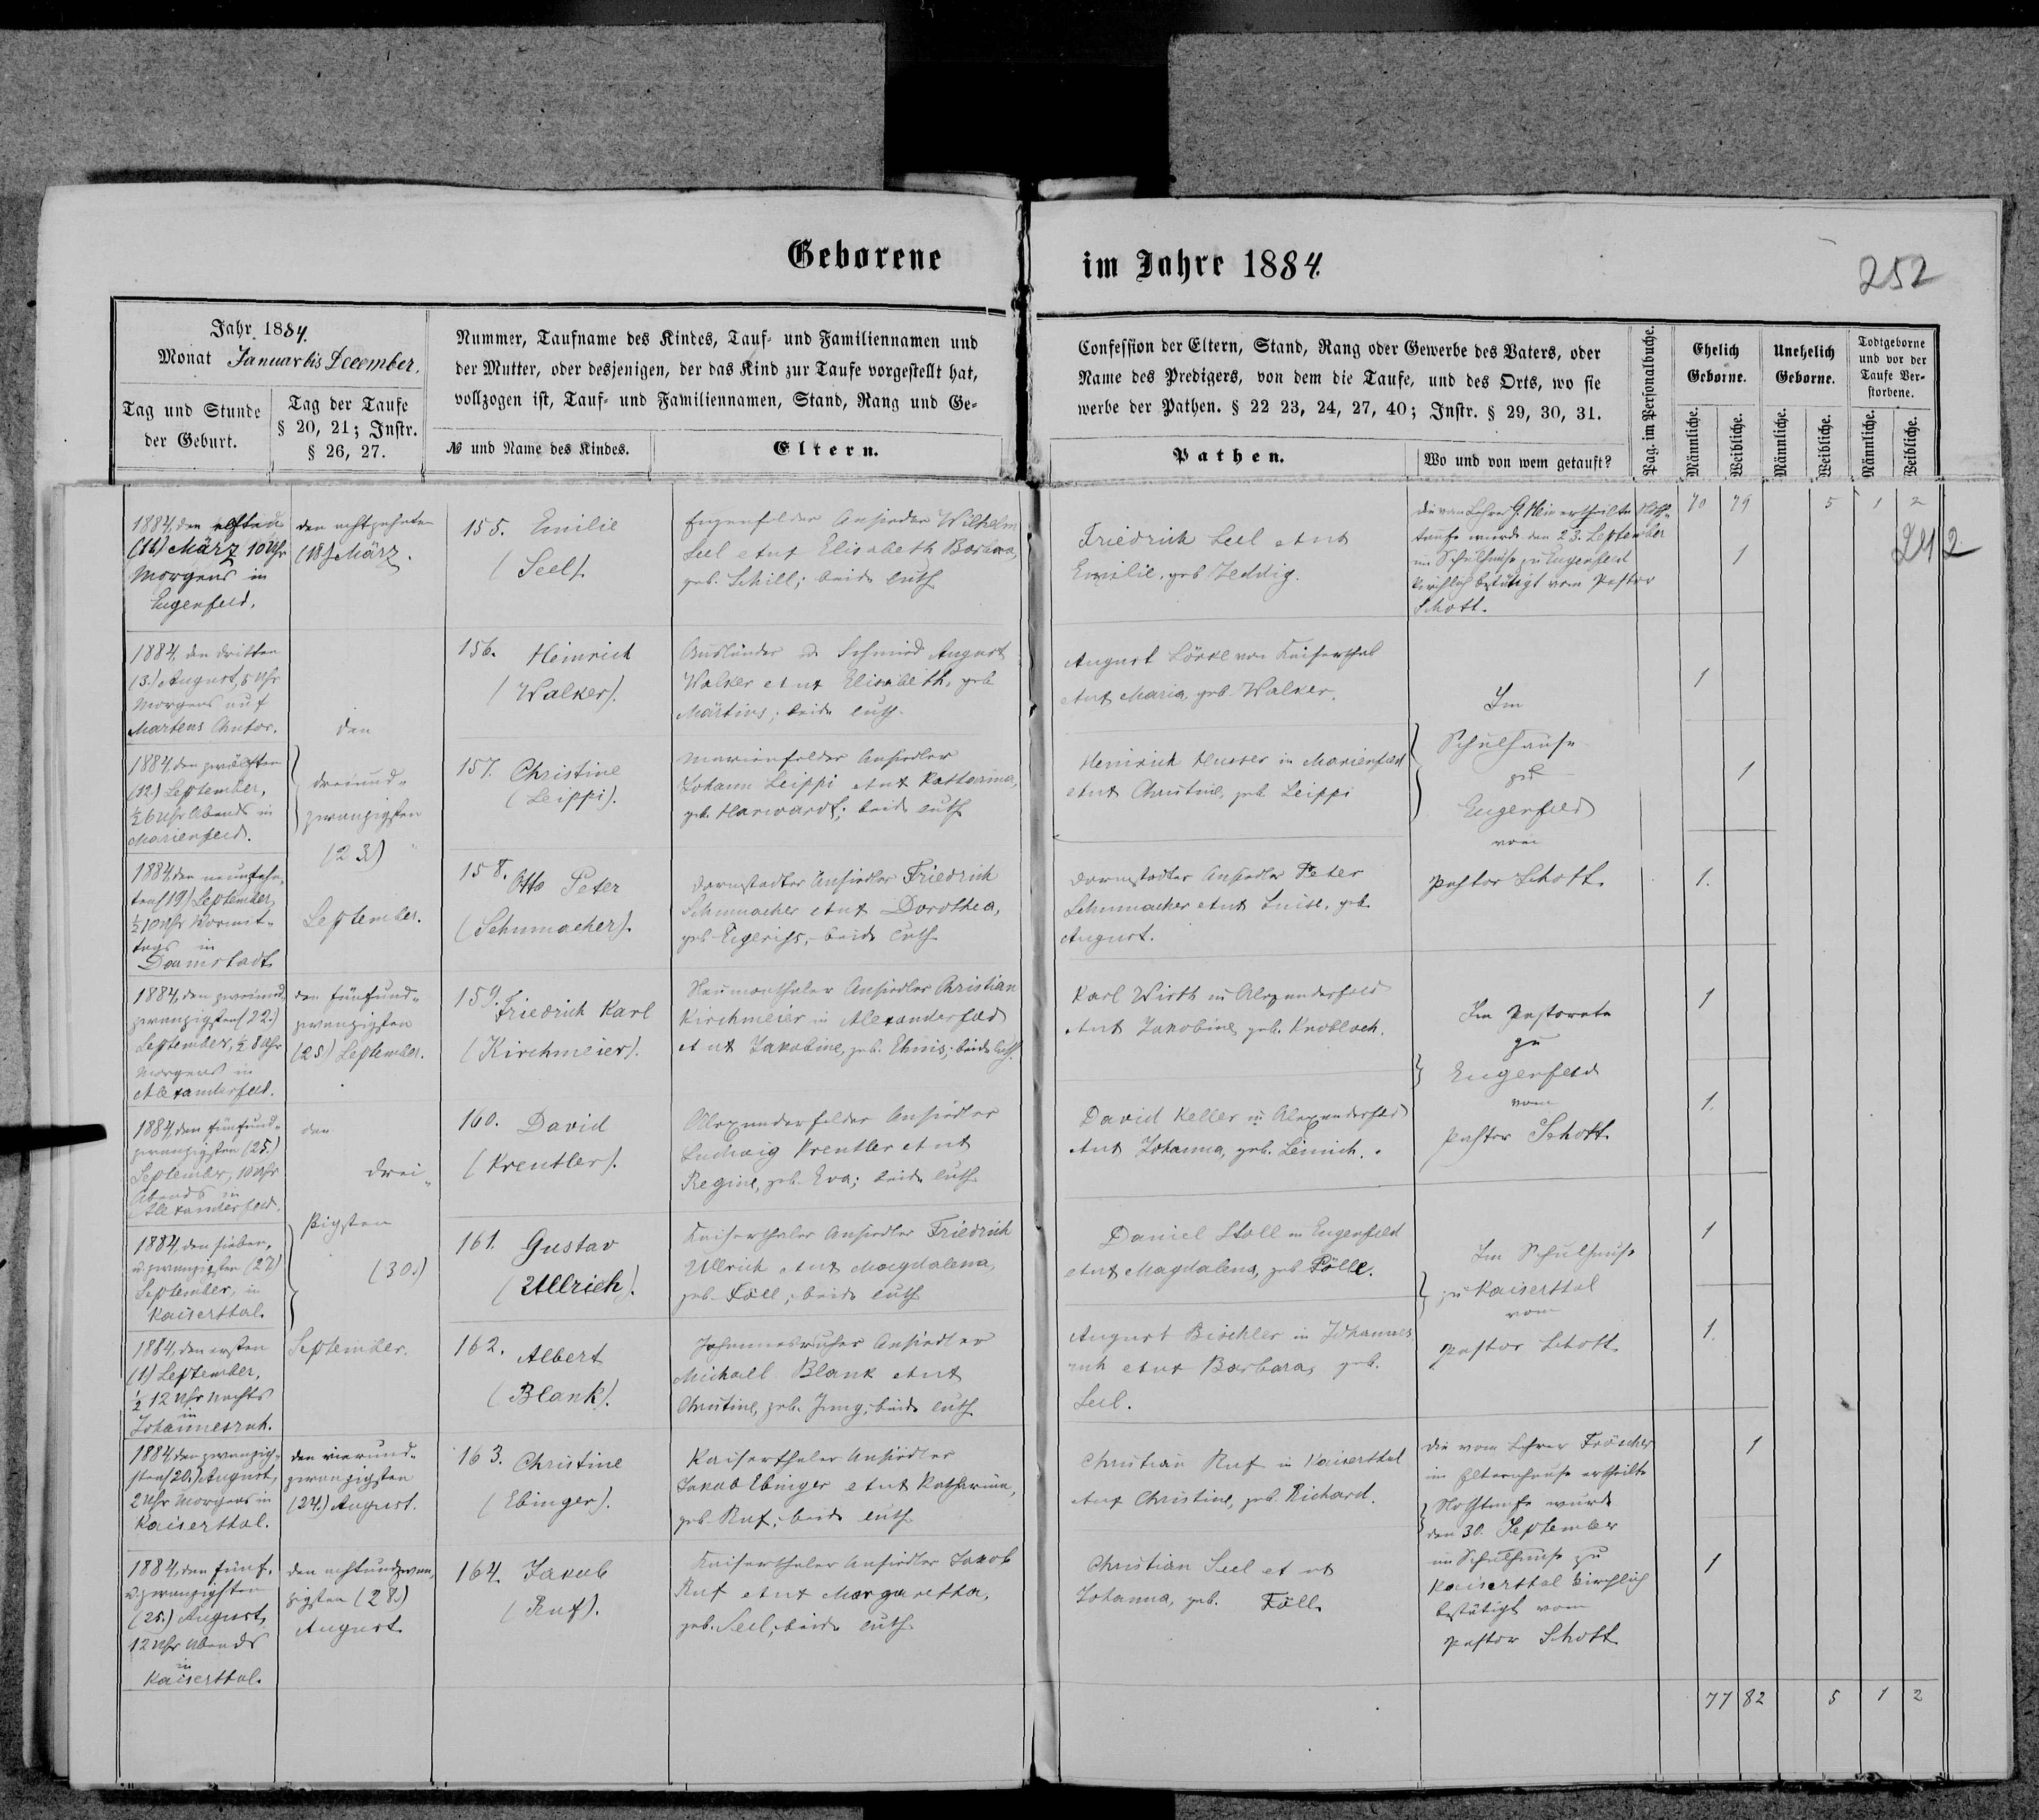 Geborene im Jahre 1884.
252
Jahr 1884.
Monat Januar bis December.
Tag und Stunde
der Geburt.
Tag der Taufe
§ 20, 21; Instr.
§ 26, 27.
Nummer, Taufname des Kindes, Tauf- und Familiennamen und
der Mutter, oder desjenigen, der das Kind zur Taufe vorgestellt hat,
vollzogen ist, Tauf- und Familiennamen, Stand, Rang und Ge-
№ und Name des Kindes.
Eltern.
Confession der Eltern, Stand, Rang oder Gewerbe des Vaters, oder
Name des Predigers, von dem die Taufe, und des Orts, wo sie
werbe der Pathen. § 22 23, 24, 27, 40; Instr. § 29, 30, 31.
Pathen.
Wo und von wem getauft?
Pag. im Personalbuche.
Ehelich
Geborne.
Unehelich
Geborne.
Todtgeborne
und vor der
Taufe Ver-
storbene.
Männliche.
Weibliche.
Männliche.
Weibliche.
Männliche.
Weibliche.
70 79 5 1 2
212
1884, den elften
(11) März 10 Uhr
Morgens in
Eugenfeld.
den achtzehnten
(18) März.
155. Emilie
(Seel).
Eugenfelder Ansiedler Wilhelm
Seel et ux Elisabeth Barbara,
geb. Schill; beide luth.
Friedrich Seel et ux
Emilie, geb. Zeddig.
die vom Lehrer G. Hein ertheilte Noth-
taufe wurde den 23. September
im Schulhause zu Eugenfeld
kirchlich bestätigt vom Pastor
Schott.
1
1884, den dritten
(3.) August, 5 Uhr
Morgens auf
Martens Chutor.
156. Heinrich
(Walker).
Ausländer u. Schmied August
Walker et ux Elisabeth, geb.
Martins; beide luth.
August Lörke von Kaiserthal
et ux Maria, geb. Walker.
1
1884, den zwölften
(12.) September,
½ 6 Uhr Abends in
Marienfeld.
den
dreiund-
zwanzigsten
(23.)
September.
157. Christine
(Leippi).
Marienfelder Ansiedler
Johann Leippi et ux Katharina,
geb. Harwardt; beide luth.
Heinrich Husser in Marienfeld
et ux Christine, geb. Leippi
Im
Schulhause
zu
Eugenfeld
vom
Pastor Schott.
1
1884, den neunzehn-
ten (19) September,
½ 10 Uhr Vormit-
tags in
Darmstadt.
158. Otto Peter
(Schumacher).
Darmstadter Ansiedler Friedrich
Schumacher et ux Dorothea,
geb. Eigeriss, beide luth.
Darmstadter Ansiedler Peter
Schumacher et ux Luise, geb.
August.
1.
1884, den zweiund-
zwanzigsten (22.)
September, ½ 8 Uhr
Morgens in
Alexanderfeld.
den fünfund-
zwanzigsten
(25.) September.
159. Friedrich Karl
(Kirchmeier).
Neumonthaler Ansiedler Christian
Kirchmeier in Alexanderfeld
et ux Jakobine, geb. Ehnis; beide luth.
Karl Wirth in Alexanderfeld
et ux Jakobine, geb. Knobloch.
Im Pastorate
zu
Eugenfeld
vom
Pastor Schott.
1
1884, den fünfund-
zwanzigsten (25.)
September, 10 Uhr
Abends in
Alexanderfeld.
den
drei-
ßigsten
(30.)
September.
160. David
(Krentler).
Alexanderfelder Ansiedler
Ludwig Krentler et ux
Regine, geb. Eva; beide luth.
David Keller in Alexanderfeld
et ux Johanna, geb. Leinich.
1.
1884, den sieben-
u. zwanzigsten (27)
September, in
Kaiserthal.
161. Gustav
(Ullrich).
Kaiserthaler Ansiedler Friedrich
Ullrich et ux Magdalena,
geb. Föll; beide luth.
Daniel Stoll in Eugenfeld
et ux Magdalena, geb. Fölle.
Im Schulhause
zu Kaiserthal
vom
Pastor Schott.
1
1884, den ersten
(1) September,
½ 12 Uhr Nachts
in
Johannesruh.
162. Albert
(Blank).
Johannesruher Ansiedler
Michael Blank et ux
Christine, geb. Jung; beide luth.
August Bischler in Johannes
ruh et ux Barbara, geb.
Seel.
1.
1884, den zwanzig-
sten (20.) August,
2 Uhr Morgens in
Kaiserthal.
den vierund-
zwanzigsten
(24.) August.
163. Christine
(Ebinger).
Kaiserthaler Ansiedler
Jakob Ebinger et ux Katharina,
geb. Ruf; beide luth.
Christian Ruf in Kaiserthal
et ux Christine, geb. Richard.
die vom Lehrer Fröscher
im Elternhause ertheilte
Nothtaufe wurde
den 30. September
im Schulhause zu
Kaiserthal kirchlich
bestätigt vom
Pastor Schott.
1
1884, den fünf-
u. zwanzigsten
(25.) August,
12 Uhr Abends
in
Kaiserthal.
den achtundzwan-
zigsten (28)
August.
164. Jakob
(Ruf).
Kaiserthaler Ansiedler Jakob
Ruf et ux Margaretha,
geb. Seel; beide luth.
Christian Seel et ux
Johanna, geb. Föll.
1
77 82 5 1 2